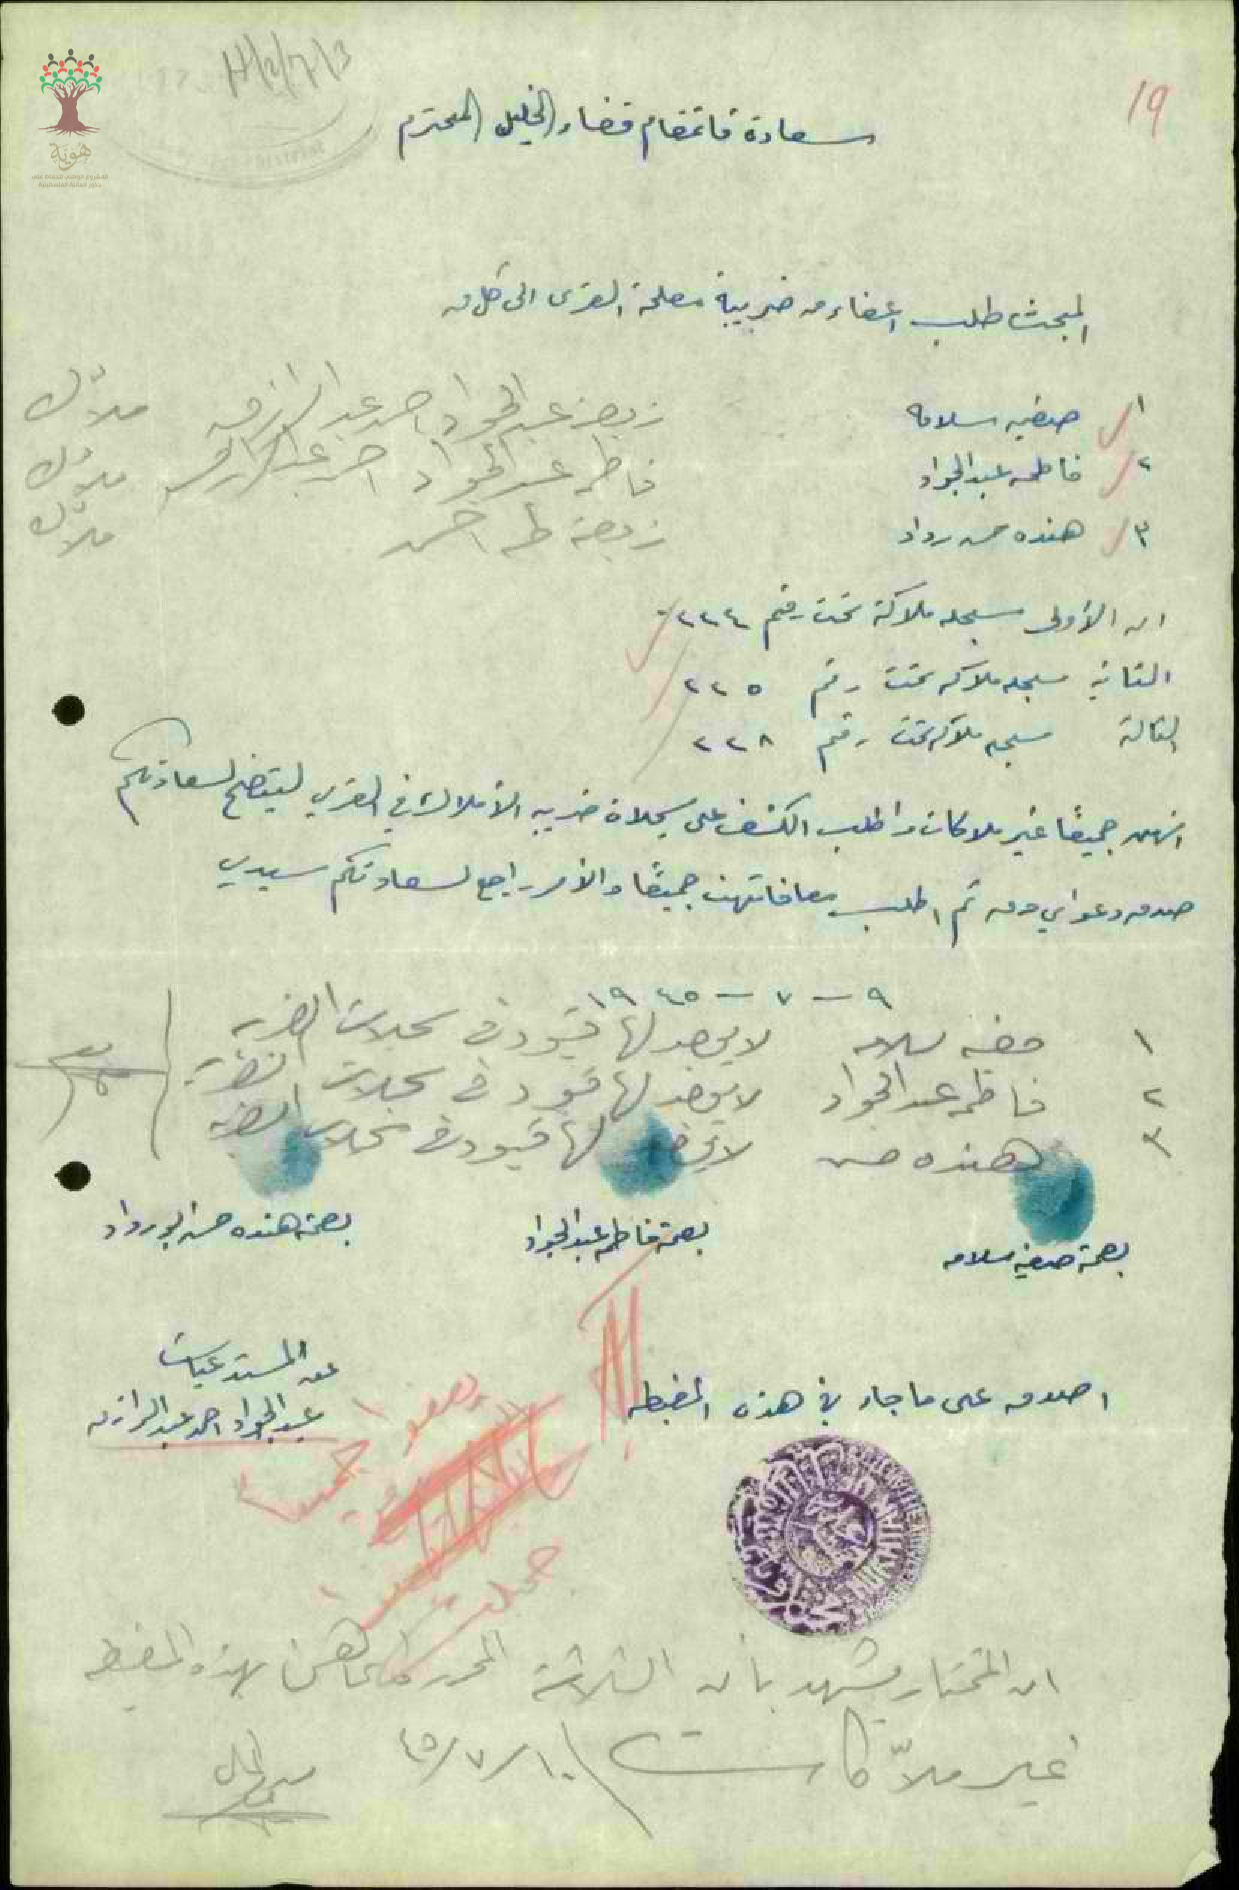 19
سعادة قائمقام قضاء الخليل المحترم
المبحث طلب اعفاء من ضريبة مصلحة القرى الى كل من
١ صفيه سلامه زوجة عبدالجواد احمد عبدالرازق ملاّك
٢ فاطمه عبدالجواد فاطمه عبدالجواد احمد عبدالرازق ملاّك
٣ هنده حسن رداد زوجة طه احمد ملاّك
ان الأولى مسجله ملاكة تحت رقم ٢٢٤
الثانيه مسجله ملاكه تحت رقم ٢٢٥
الثالثة مسجله ملاكه تحت رقم ٢٢٨
انهن جميعًا غير ملاكات واطلب الكشف على سجلات ضريبه الأملاك في القرى ليتضح لسعادتكم
صدق دعواي ومن ثم اطلب معافاتهن جميعًا والأمر راجع لسعادتكم سيدي
٩ - ٧ - ١٩٤٥
١ صفيه سلامه لا يوجد لها قيود في سجلات الضريبه
٢ فاطمه عبدالجواد لا يوجد لها قيود في سجلات الضريبه
٣ هنده حسن لا يوجد لها قيود في سجلات الضريبه
بصمة صفيه سلامه
بصمة فاطمه عبدالجواد
بصمة هنده حسن ابو رداد
عن المستدعيات
عبدالجواد احمد عبدالرازق
اصدق على ما جاء في هذه المضبطه
ان المختار يشهد بأن الثلاثة المحرر اسماهن بهذه المضبطه
غير ملاّكات ١٠/٧/٤٥
هوية